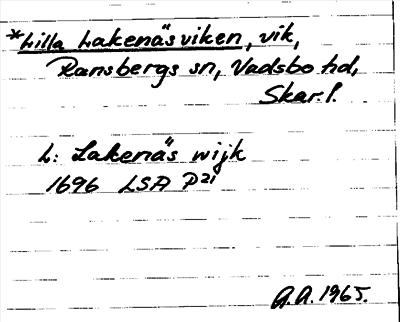 *Lilla Lakenäsviken, vik,
Ransbergs sn, Vadsbo hd,
Skar.l.
L: Lakenäs wijk
1696 LSA P21
A.A. 1965.